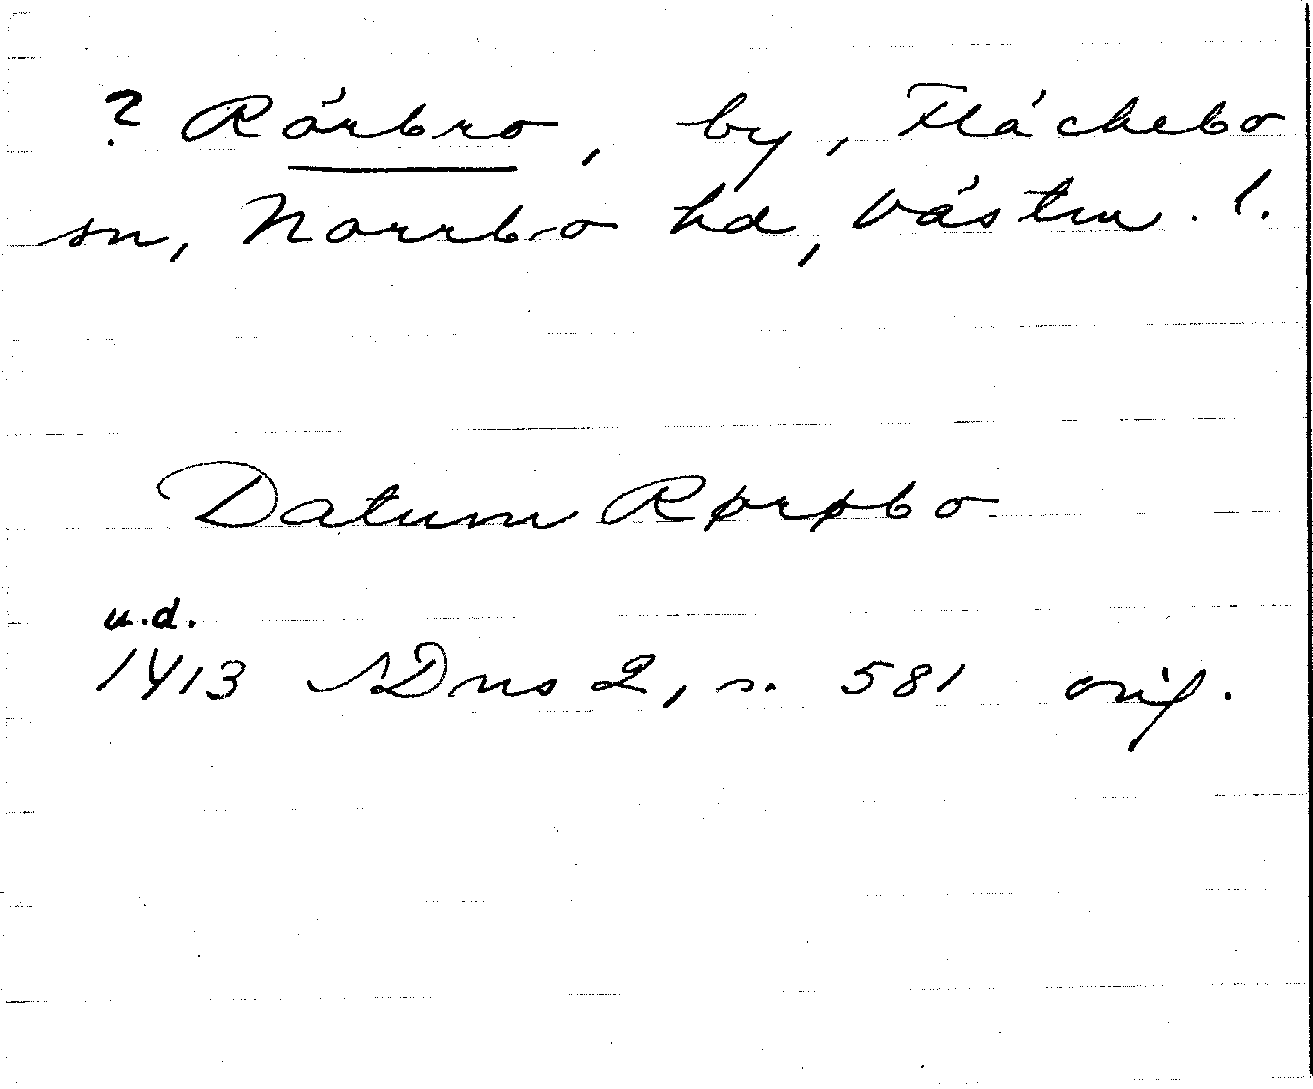 ? Rörbro, by, Fläckebo
sn, Norrbo hd, Västm. l.
Datum Rørøbo
u.d.
1413 SDns 2, s. 581 orig.